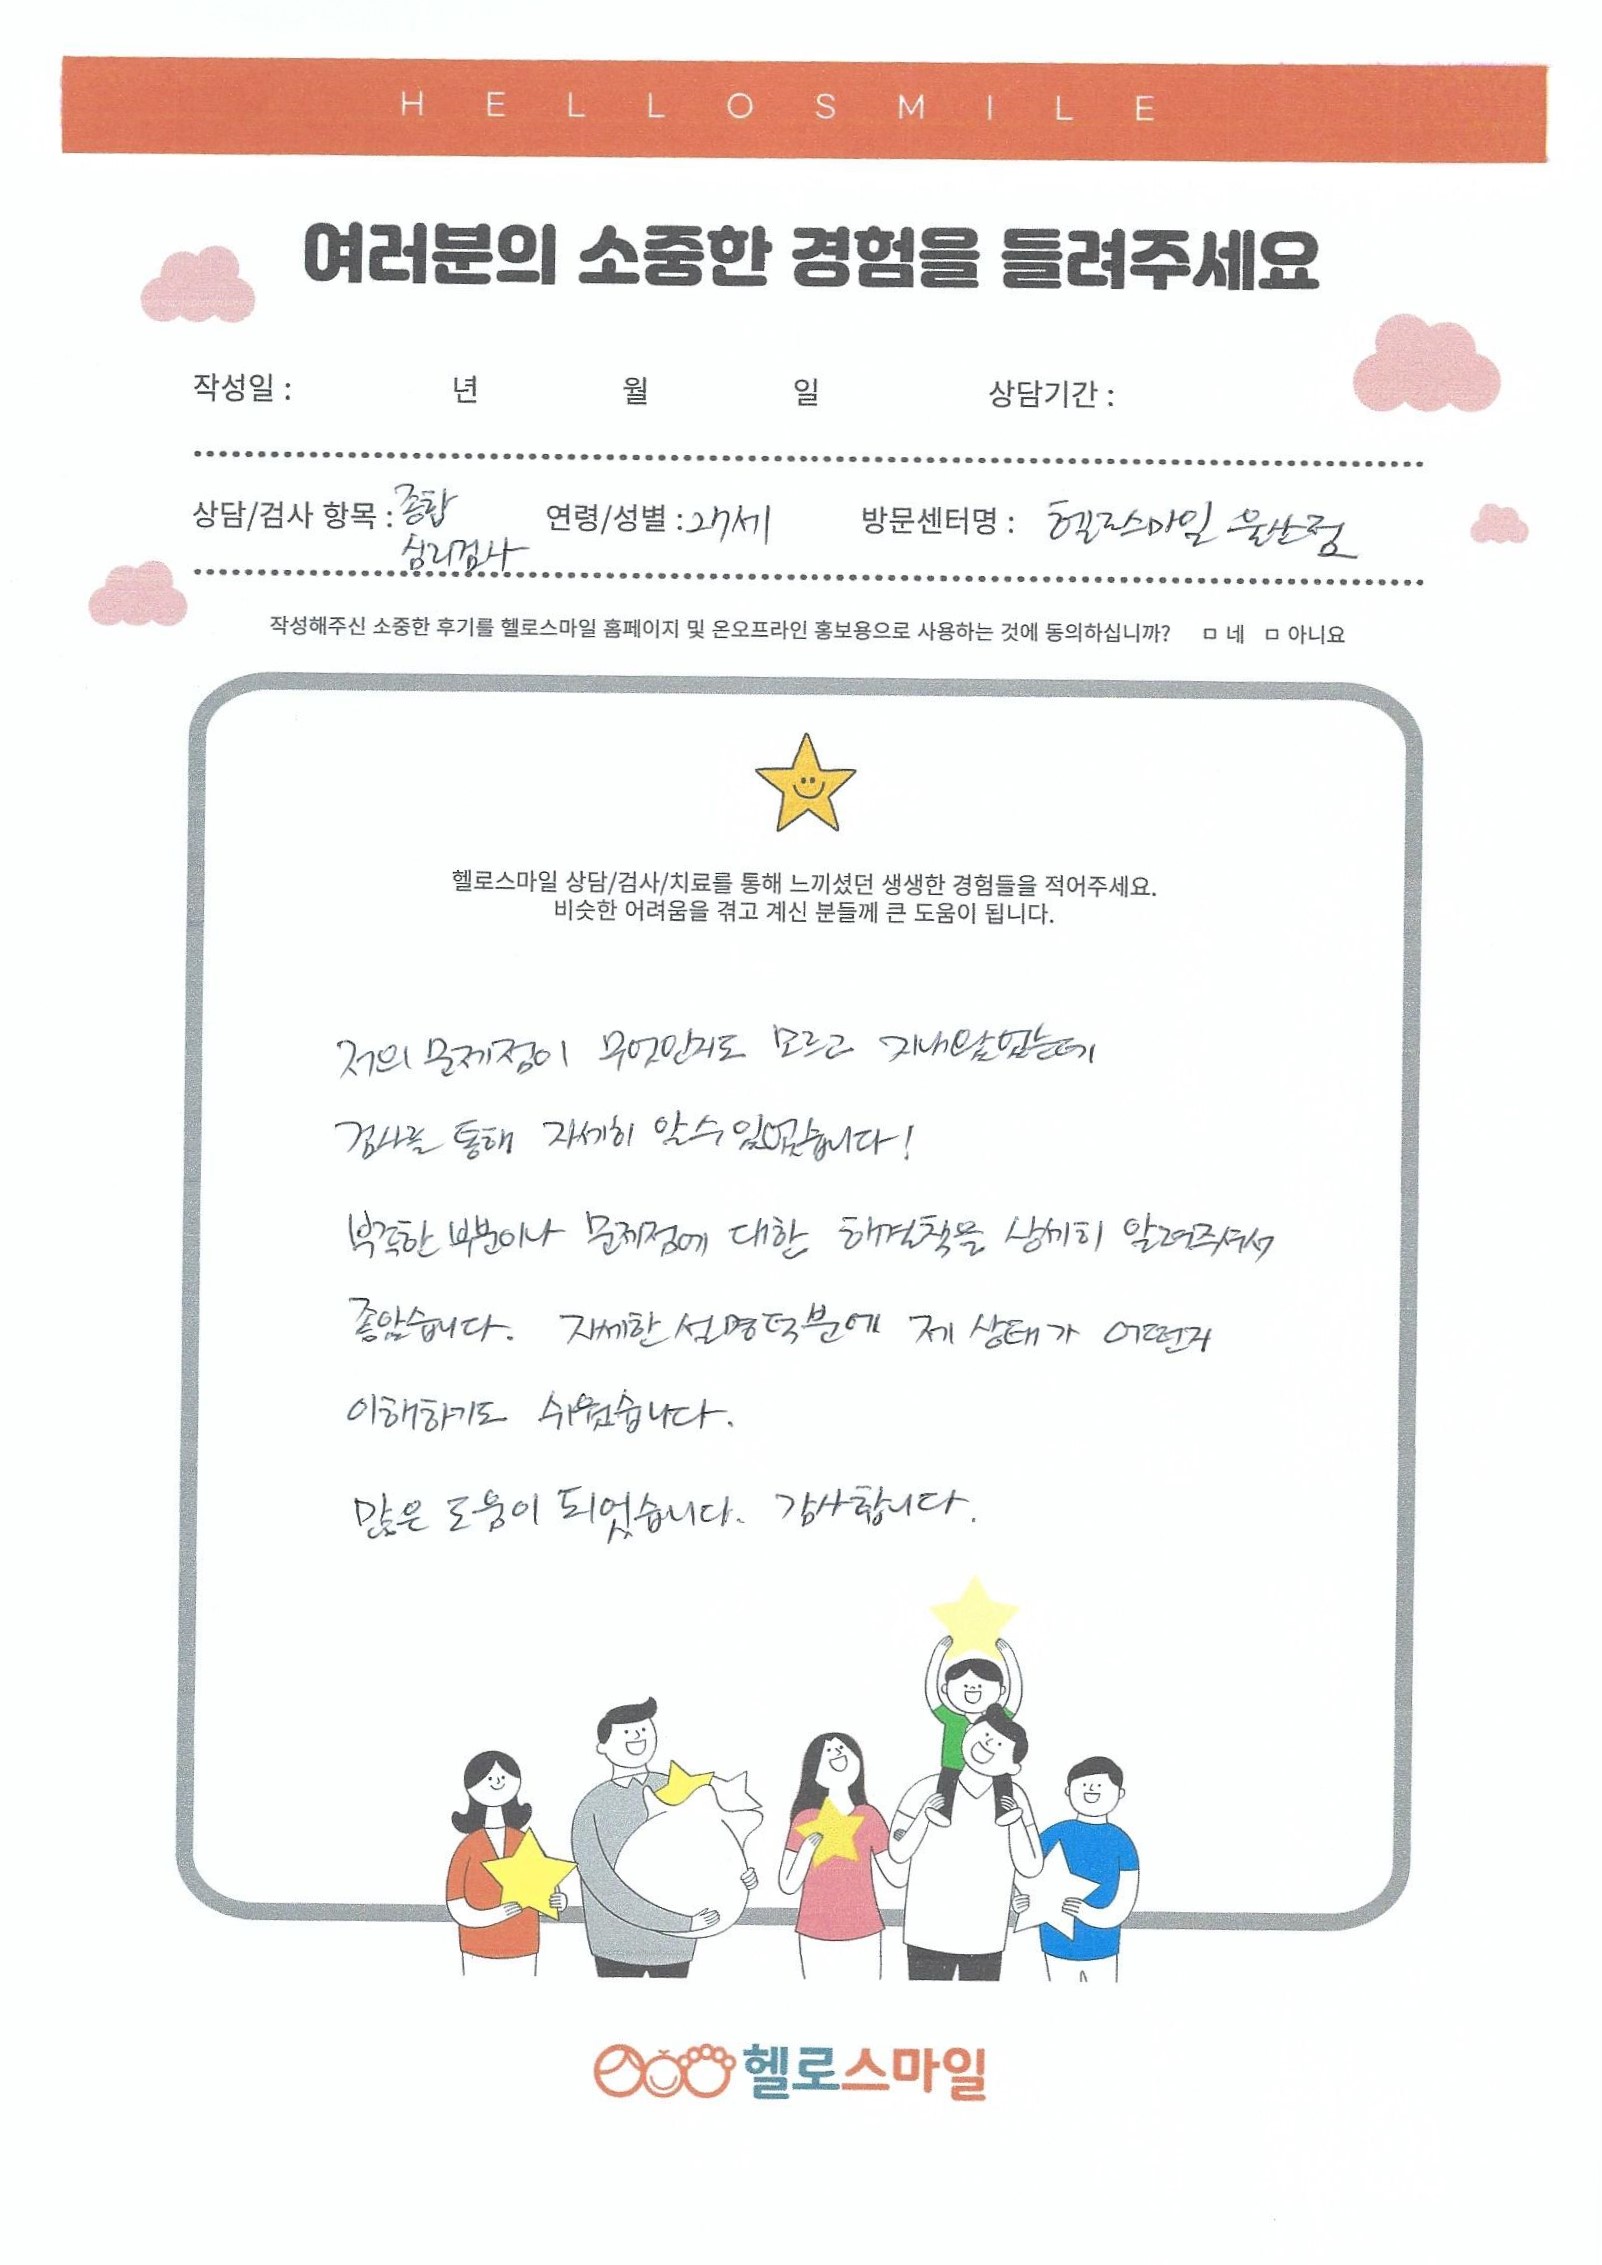 HELLOSMILE
여러분의 소중한 경험을 들려주세요
작성일 : 년 월 일 상담기간 :
상담/검사 항목 : 종합 심리검사 연령/성별 : 27세 방문센터명 : 헬로스마일 울산점
작성해주신 소중한 후기를 헬로스마일 홈페이지 및 온오프라인 홍보용으로 사용하는 것에 동의하십니까? ㅁ 네 ㅁ 아니요
헬로스마일 상담/검사/치료를 통해 느끼셨던 생생한 경험들을 적어주세요.
비슷한 어려움을 겪고 계신 분들께 큰 도움이 됩니다.
저의 문제점이 무엇인지도 모르고 지내왔었는데
검사를 통해 자세히 알수있었습니다!
부족한 부분이나 문제점에 대한 해결책을 상세히 알려주셔서
좋았습니다. 자세한 설명덕분에 제 상태가 어떤지
이해하기도 쉬웠습니다.
많은 도움이 되었습니다. 감사합니다.
헬로스마일